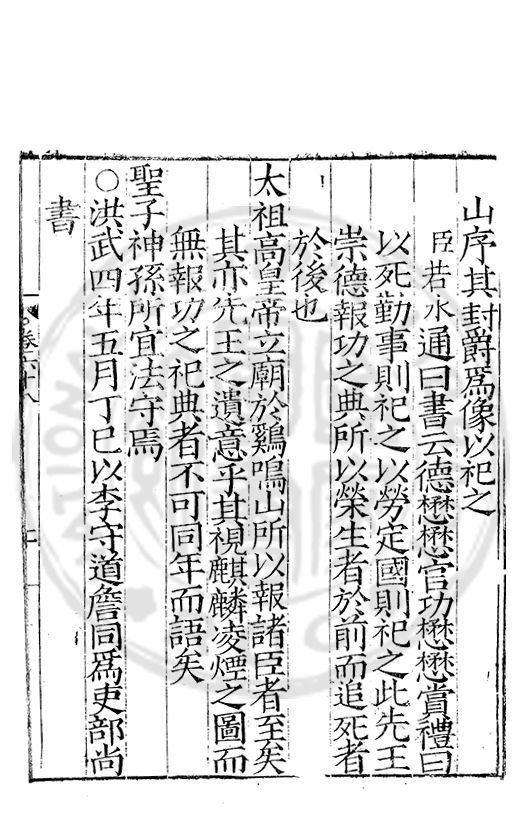 山序其封爵爲像以祀之
臣若水通曰書云德懋懋官功懋懋賞禮曰
以死勤事則祀之以勞定國則祀之此先王
崇德報功之典所以榮生者於前而追死者
於後也
太祖高皇帝立廟於鷄鳴山所以報諸臣者至矣
其亦先王之遺意乎其視麒麟凌煙之圖而
無報功之祀典者不可同年而語矣
聖子神孫所宜法守焉
○洪武四年五月丁巳以李守道詹同爲吏部尚
書
卷六十八